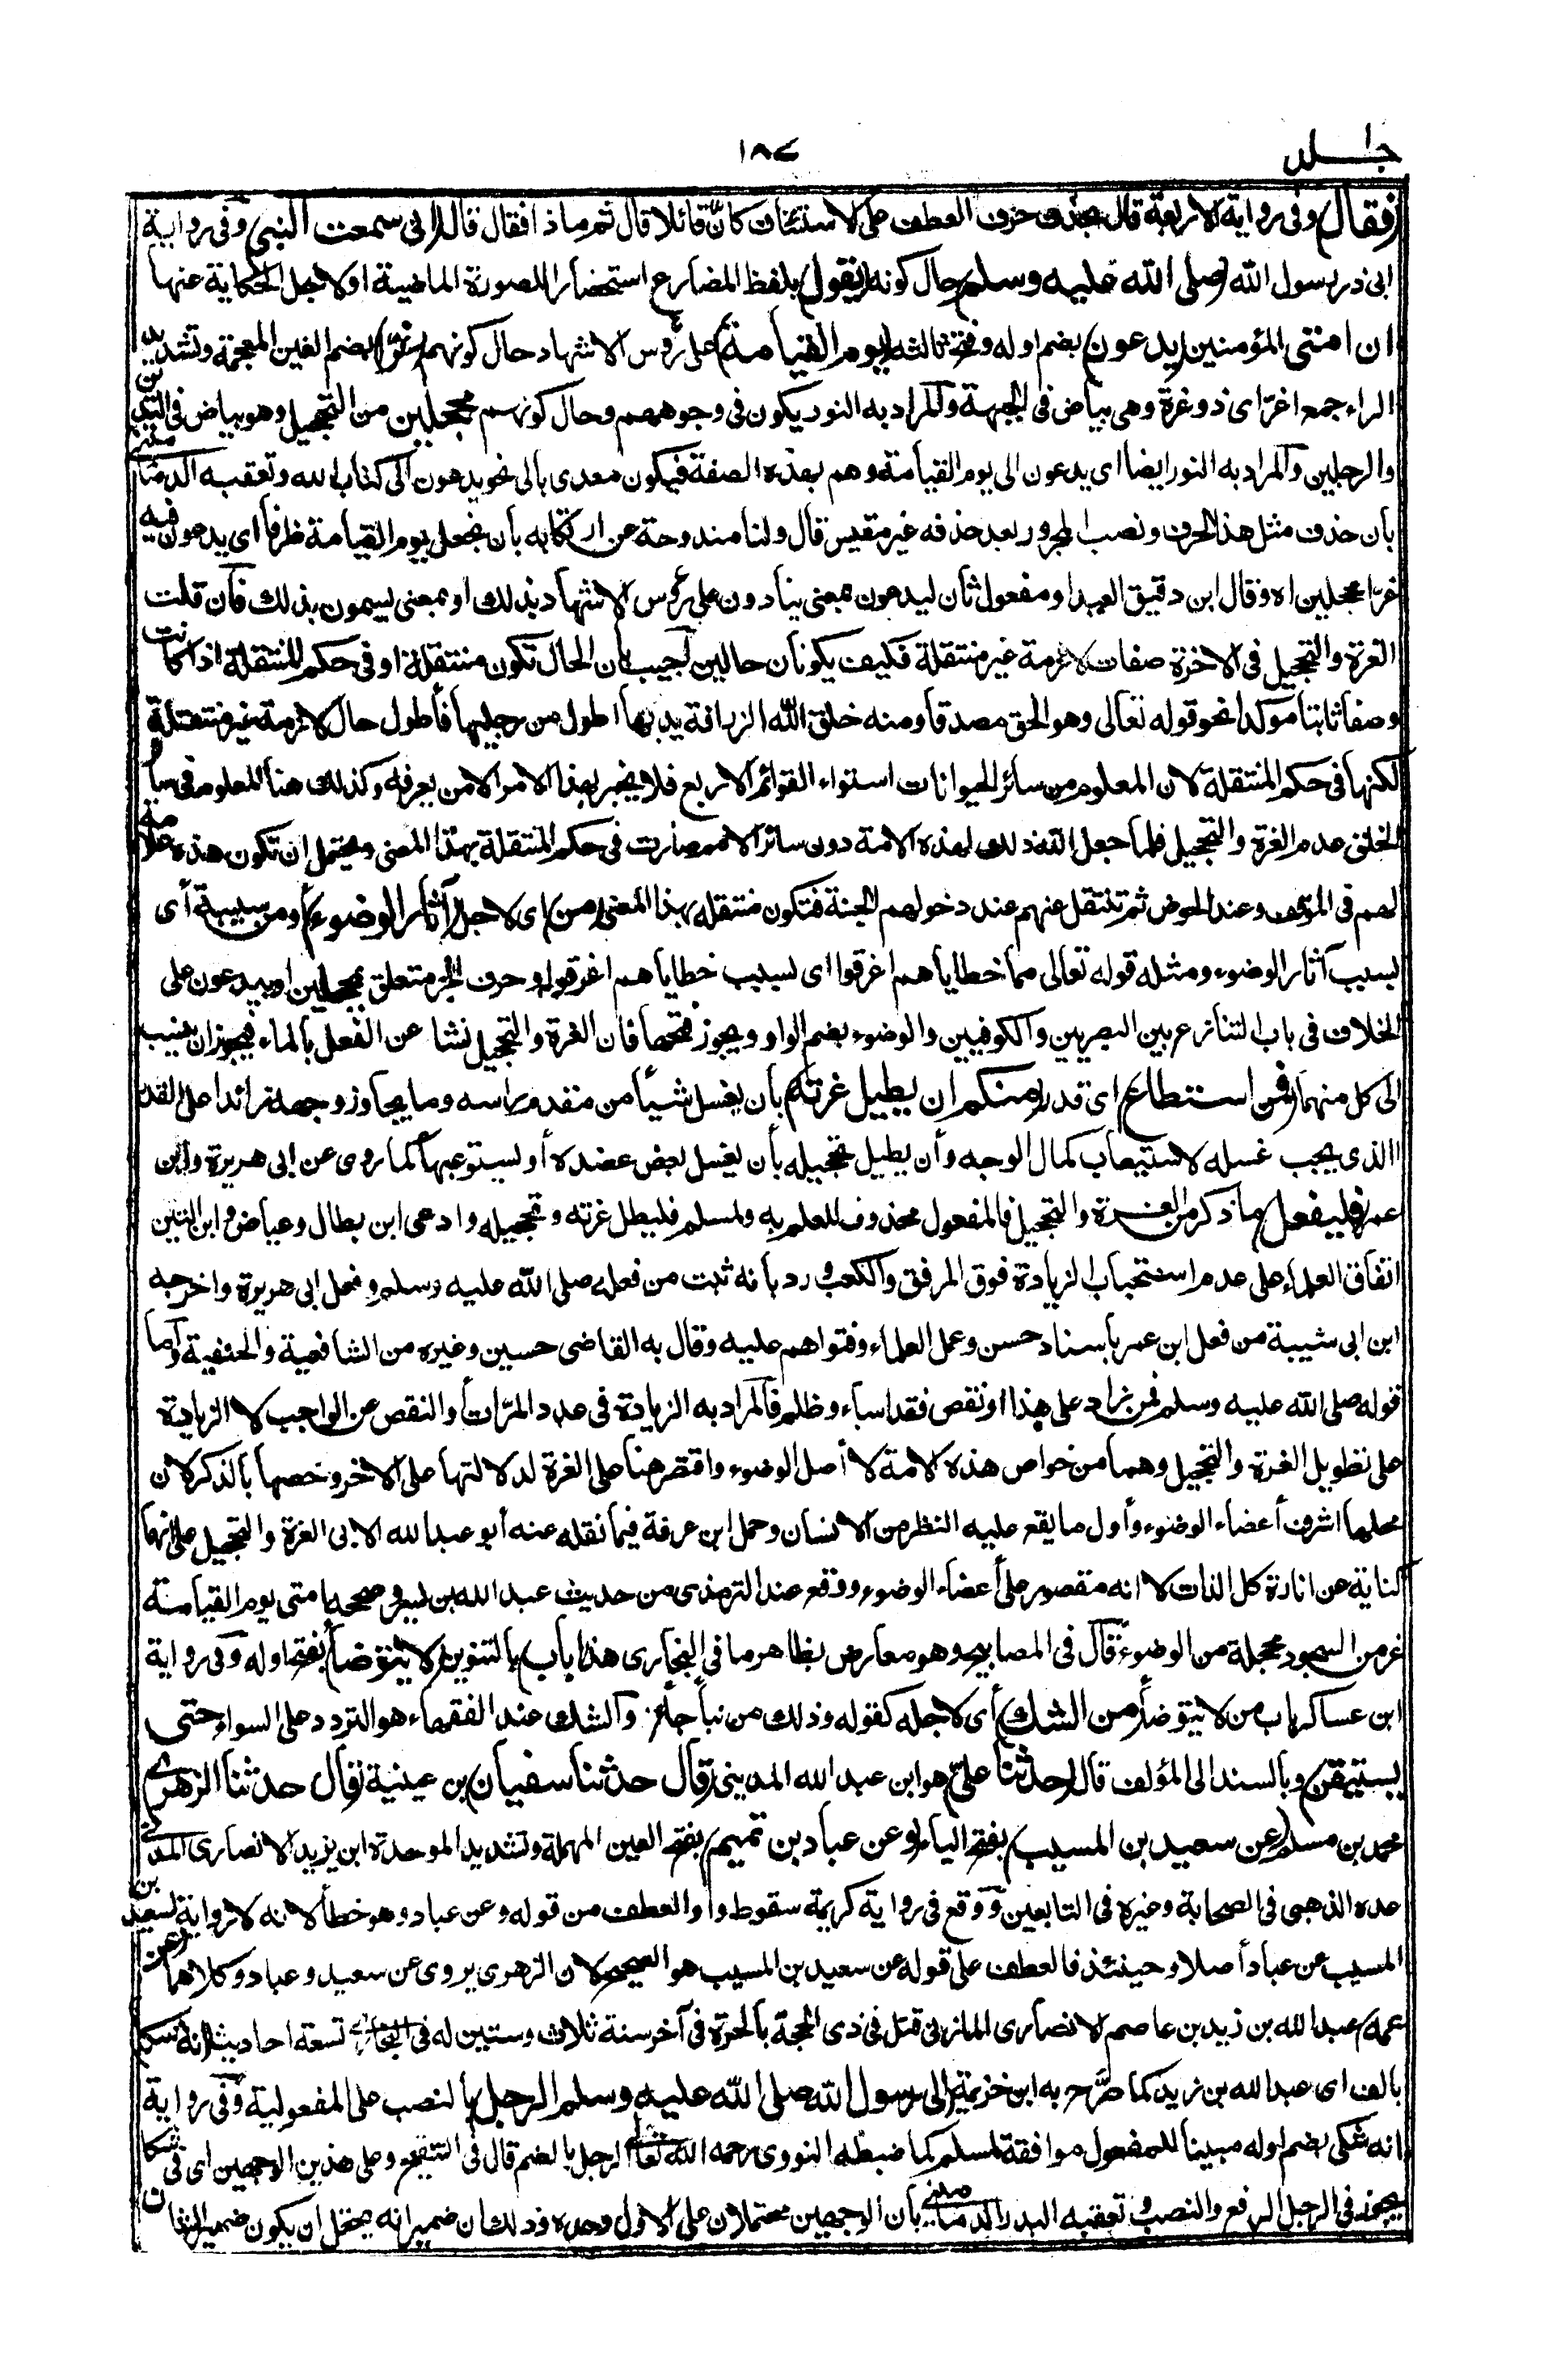 جلد ١ ١٨٧
(فقال) وفى رواية الاربعة قال بحذف حرف العطف على الاستئناف كأنّ قائلا قال ثم ماذا فقال قال (انى سمعت النبى) وفى رواية
ابى ذر رسول الله (صلى الله عليه وسلم) حال كونه (يقول) بلفظ المضارع استحضارا للصورة الماضية او لاجل الحكاية عنها
(ان امتى) المؤمنين (يدعون) بضم اوله وفتح ثالثه (يوم القيامة) على رؤس الاشهاد حال كونهم (غرّا) بضم الغين المعجمة وتشديد
الراء جمع اغرّ اى ذو غرة وهى بياض فى الجبهة والمراد به النور يكون فى وجوههم وحال كونهم (محجلين) من التحجيل وهو بياض فى اليدين
والرجلين والمراد به النور ايضا اى يدعون الى يوم القيامة وهم بهذه الصفة فيكون معدى بالى نحو يدعون الى كتاب الله وتعقبه الدمامينى
بأن حذف مثل هذا الحرف ونصب المجرور بعد حذفه غير مقيس قال ولنا مندوحة عن ارتكابه بأن نجعل يوم القيامة ظرفا أى يدعون فيه
غرّا محجلين اه وقال ابن دقيق العيد او مفعول ثان ليدعون بمعنى ينادون على رؤس الاشهاد بذلك او بمعنى يسمون بذلك فأن قلت
الغرة والتحجيل فى الاخرة صفات لازمة غير منتقلة فكيف يكونان حالين اجيب بأن الحال تكون منتقلة او فى حكم المنتقلة اذا كانت
وصفا ثابتا مؤكدا نحو قوله تعالى وهو الحق مصدقا ومنه خلق الله الزرافة يديها اطول من رجليها فأطول حال لازمة غير منتقلة
لكنها فى حكم المنتقلة لان المعلوم من سائر الحيوانات استواء القوائم الاربع فلا يخبر بهذا الامر الا من يعرفه وكذلك هنا المعلوم فى سائر
الخلق عدم الغرة والتحجيل فلما جعل الله ذلك لهذه الامة دون سائر الامم صارت فى حكم المنتقلة بهذا المعنى ويحتمل ان تكون هذه علامة
لهم فى الموقف وعند الحوض ثم تنتقل عنهم عند دخولهم الجنة فتكون منتقله بهذا المعنى (من) اى لاجل (آثار الوضوء) أو من سببية أى
بسبب آثار الوضوء ومثله قوله تعالى مما خطاياهم اغرقوا اى بسبب خطاياهم اغرقوا وحرف الجر متعلق بمحجلين او بيدعون على
الخلاف فى باب التنازع بين البصريين والكوفيين والوضوء بضم الواو ويجوز فتحها فان الغرة والتحجيل نشأ عن الفعل بالماء فيجوز ان ينسب
الى كل منهما (فمن استطاع) اى قدر (منكم ان يطيل غرته) بأن يغسل شيأ من مقدم راسه وما يجاوز وجهه زائدا على القدر
الذى يجب غسله لاستيعاب كمال الوجه وأن يطيل تحجيله بأن يغسل بعض عضده أو يستوعبها كما روى عن ابى هريرة وابن
عمر (فليفعل) ما ذكر من الغرة والتحجيل فالمفعول محذوف للعلم به ولمسلم فليطل غرته وتحجيله وادعى ابن بطال وعياض وابن التين
اتفاق العلماء على عدم استحباب الزيادة فوق المرفق والكعب و رد بأنه ثبت من فعله صلى الله عليه وسلم وفعل ابى هريرة واخرجه
ابن ابى شيبة من فعل ابن عمر بأسناد حسن وعمل العلماء وفتواهم عليه وقال به القاضى حسين وغيره من الشافعية والحنفية وأما
قوله صلى الله عليه وسلم فمن زاد على هذا او نقص فقد اساء وظلم فالمراد به الزيادة فى عدد المرّات أو النقص عن الواجب لا الزيادة
على تطويل الغرة والتحجيل وهما من خواص هذه الامة لا أصل الوضوء واقتصر هنا على الغرة لدلالتها على الاخر وخصها بالذكر لان
محلها اشرف أعضاء الوضوء وأول ما يقع عليه النظر من الانسان وحمل ابن عرفة فيما نقله عنه أبو عبد الله الابى الغرة والتحجيل على انهما
كناية عن انارة كل الذات لا انه مقصور على أعضاء الوضوء ووقع عند الترمذى من حديث عبد الله بن بسر وصححه امتى يوم القيامة
غر من السجود محجلة من الوضوء قال فى المصابيح وهو معارض بظاهر ما فى البخارى هذا (باب) بالتنوين (لا يتوضأ) بفتح اوله وفى رواية
ابن عساكر باب من لا يتوضأ (من الشك) أى لاجله كقوله وذلك من نبأ جاءنى والشك عند الفقهاء هو التردد على السواء (حتى
يستيقن) وبالسند الى المؤلف قال (حدثنا على) هو ابن عبد الله المدينى (قال حدثنا سفيان) بن عيينة (قال حدثنا الزهرى)
محمد بن مسلم (عن سعيد بن المسيب) بفتح الياء (وعن عباد بن تميم) بفتح العين المهملة وتشديد الموحدة ابن يزيد الانصارى المدنى
عده الذهبى فى الصحابة وغيره فى التابعين ووقع فى رواية كريمة سقوط واو العطف من قوله وعن عباد وهو خطأ لانه لا رواية لسعيد بن
المسيب عن عباد أصلا وحينئذ فالعطف على قوله عن سعيد بن المسيب هو الصحيح لان الزهرى يروى عن سعيد وعباد وكلاهما (عن
عمه) عبد الله بن زيد بن عاصم الانصارى المازنى قتل فى ذى الحجة بالحرة فى آخر سنة ثلاث وستين له فى البخارى تسعة احاديث (انه شكا)
بالف اى عبد الله بن زيد كما صرّح به ابن خزيمة (الى رسول الله صلى الله عليه وسلم الرجل) بالنصب على المفعولية وفى رواية
انه شكى بضم اوله مبينا للمفعول موافقة لمسلم كما ضبطه النووى رحمه الله تعالى الرجل بالضم قال فى التنقيح وعلى هذين الوجهين اى فى شكا
يجوز فى الرجل الرفع والنصب و تعقبه البدر الدمامينى بأن الوجهين محتملان على الاول وحده وذلك ان ضمير انه يحتمل ان يكون ضمير الشان